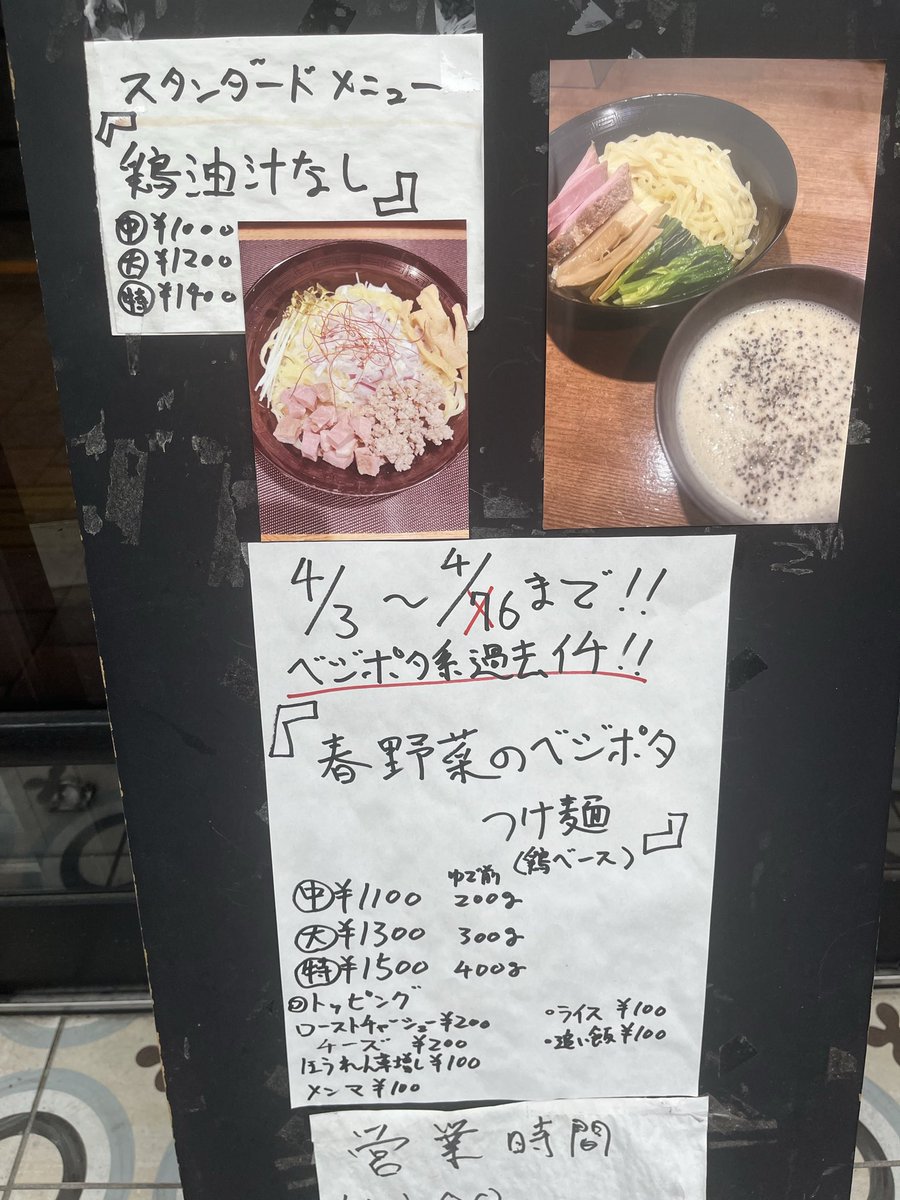 スタンダードメニュー
『鶏油汁なし』
㊥¥1000
㊅¥1200
㊕¥1400
4/3～4/6まで!!
ベジポタ系過去イチ!!
『春野菜のベジポタ
つけ麺』
(鶏ベース)
ゆで前
㊥¥1100 200g
㊅¥1300 300g
㊕¥1500 400g
トッピング
ローストチャーシュー¥200
チーズ ¥200
ほうれん草増し¥100
メンマ¥100
・ライス ¥100
・追い飯¥100
営業時間